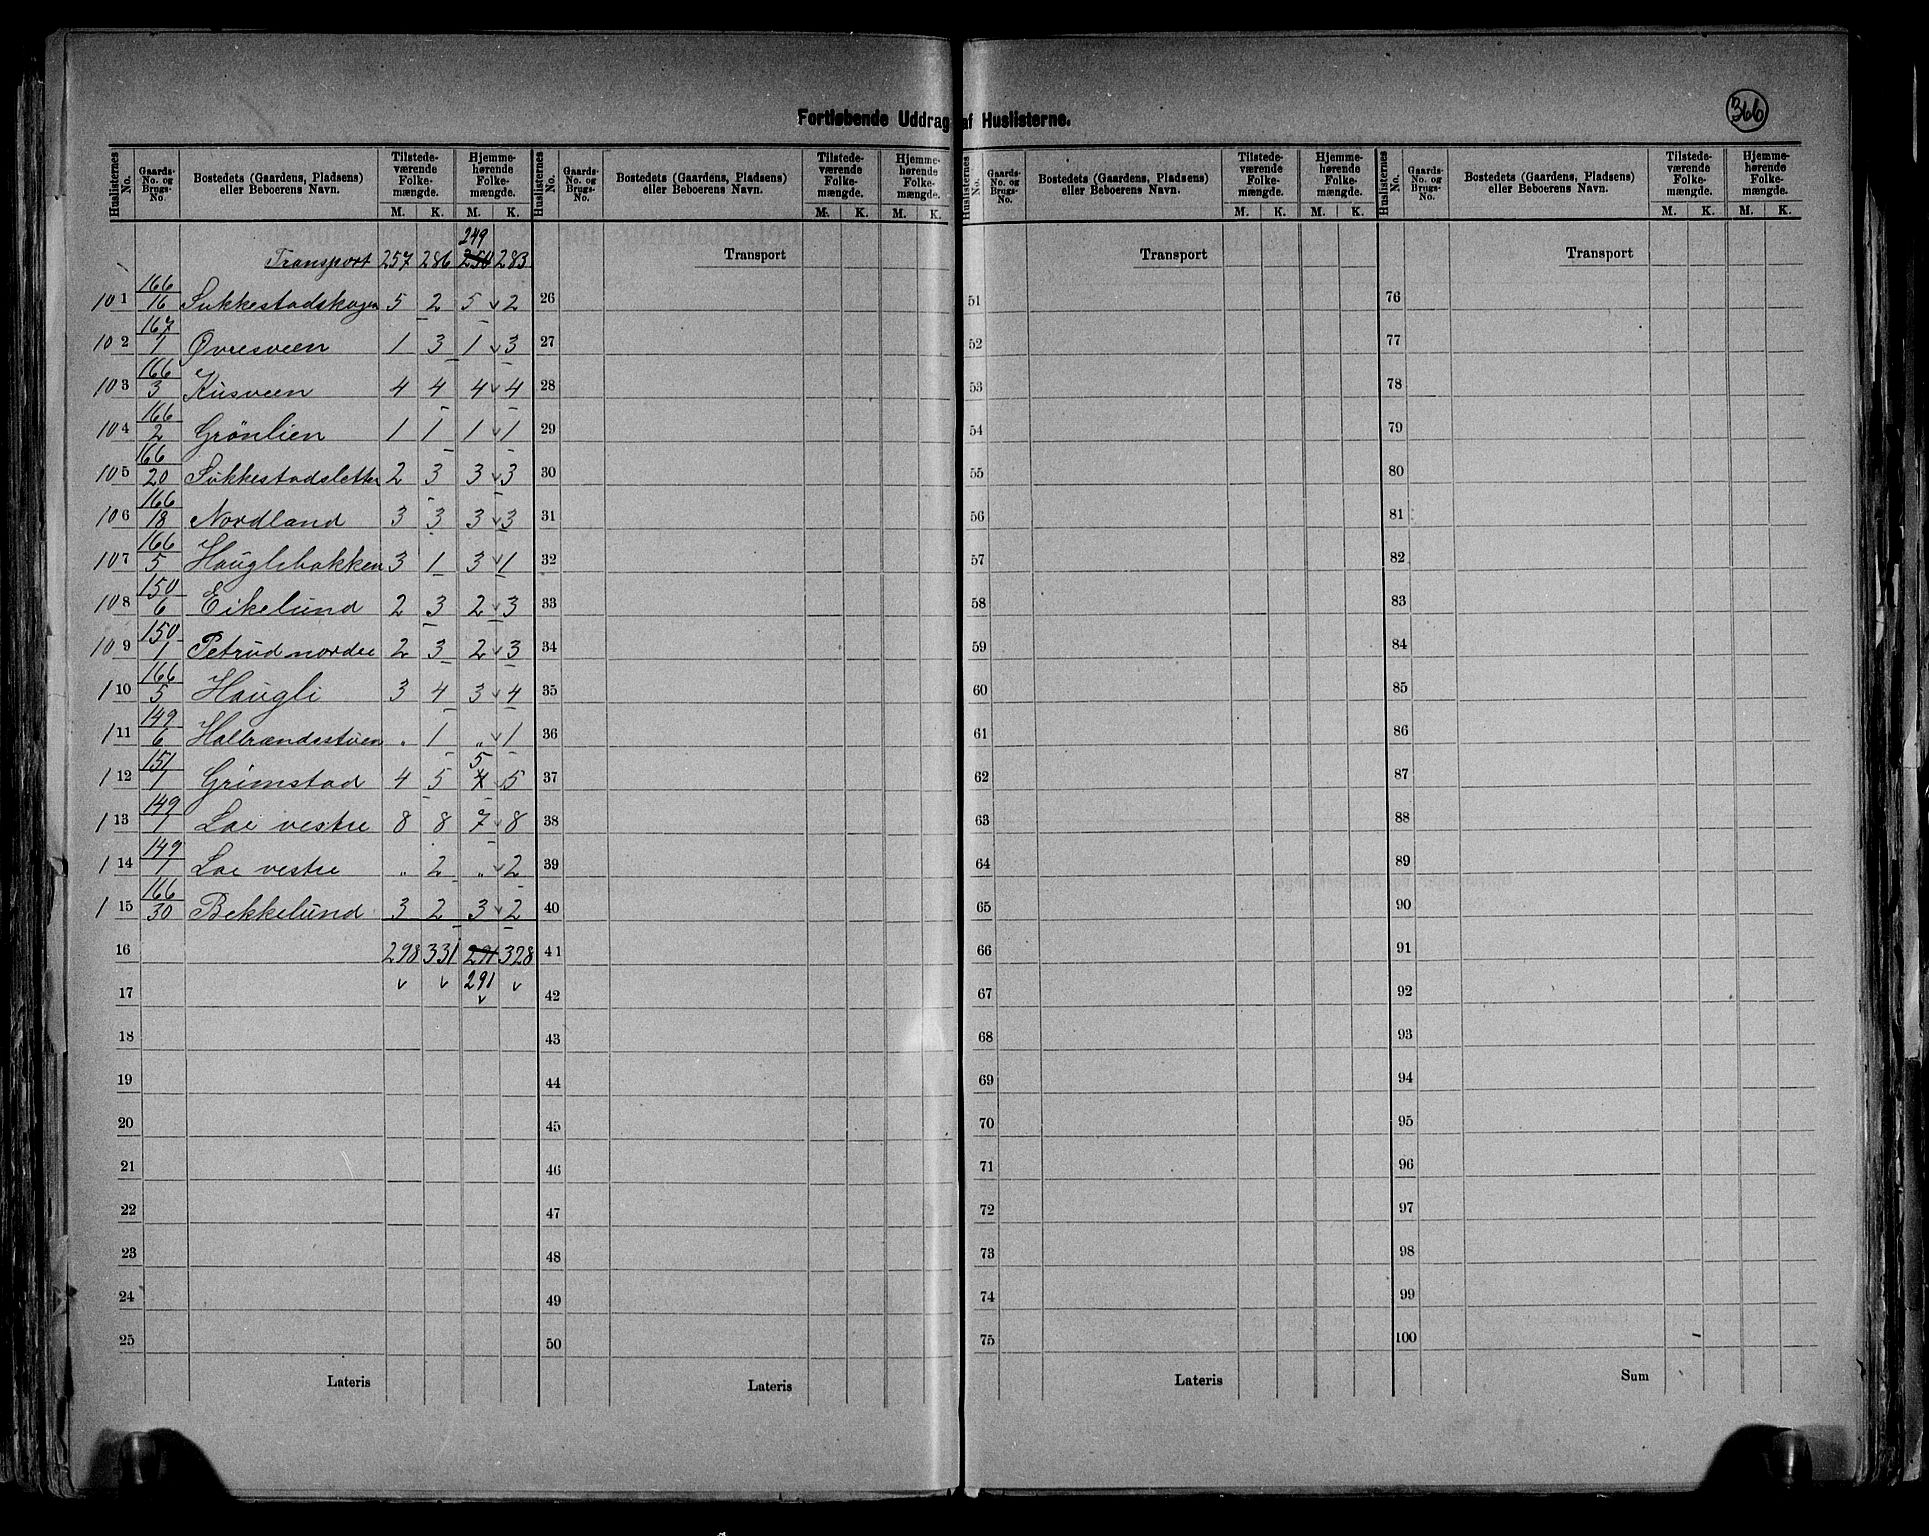 Fortløbende Uddrag af Huslisterne.
366
Huslisternes No. | Gaards-No. og Brugs-No. | Bostedets (Gaardens, Pladsens) eller Beboerens Navn. | Tilstedeværende Folkemængde. M. K. | Hjemmehørende Folkemængde. M. K.
Huslisternes No. | Gaards-No. og Brugs-No. | Bostedets (Gaardens, Pladsens) eller Beboerens Navn. | Tilstedeværende Folkemængde. M. K. | Hjemmehørende Folkemængde. M. K.
Huslisternes No. | Gaards-No. og Brugs-No. | Bostedets (Gaardens, Pladsens) eller Beboerens Navn. | Tilstedeværende Folkemængde. M. K. | Hjemmehørende Folkemængde. M. K.
Huslisternes No. | Gaards-No. og Brugs-No. | Bostedets (Gaardens, Pladsens) eller Beboerens Navn. | Tilstedeværende Folkemængde. M. K. | Hjemmehørende Folkemængde. M. K.
249
Transport 257 286 250 283
101 166/16 Sukkestadskogen 5 2 5 v 2
102 167/1 Øvresveen 1 3 1 v 3
103 166/3 Kusveen 4 4 4 v 4
104 166/2 Grönlien 1 1 1 v 1
105 166/20 Sukkestadsletten 2 3 3 v 3
106 166/18 Nordland 3 3 3 v 3
107 166/5 Hauglibakken 3 1 3 v 1
108 150/6 Eikelund 2 3 2 v 3
109 150/1 Petrud nordre 2 3 2 v 3
110 166/5 Haugli 3 4 3 v 4
111 149/6 Halbrændsstuen " 1 " v 1
5
112 151/1 Grimstad 4 5 4 v 5
113 149/1 Loe vestre 8 8 7 v 8
114 149/1 Loe vestre " 2 " v 2
115 166/30 Bekkelund 3 2 3 v 2
16 298 331 291 328
17 v v 291 v
v
18
19
20
21
22
23
24
25
Lateris
Transport
26
27
28
29
30
31
32
33
34
35
36
37
38
39
40
41
42
43
44
45
46
47
48
49
50
Lateris
Transport
51
52
53
54
55
56
57
58
59
60
61
62
63
64
65
66
67
68
69
70
71
72
73
74
75
Lateris
Transport
76
77
78
79
80
81
82
83
84
85
86
87
88
89
90
91
92
93
94
95
96
97
98
99
100
Sum